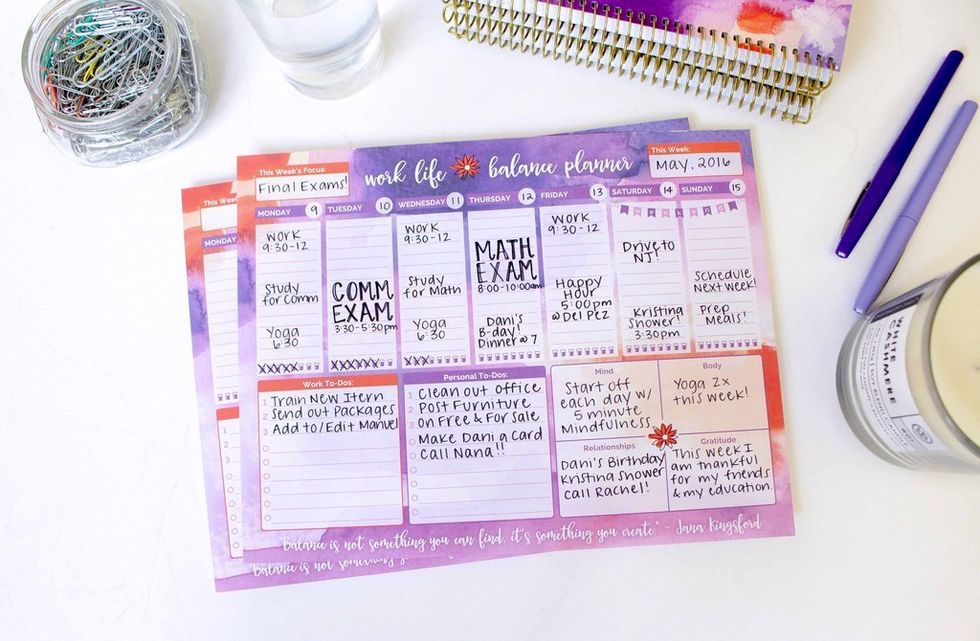 This Week's Focus:
Final Exams!
work life balance planner
This Week:
May, 2016
MONDAY 9
Work
9:30-12
Study
for Comm
Yoga
6:30
TUESDAY 10
COMM
EXAM
3:30-5:30pm
WEDNESDAY 11
Work
9:30-12
Study
for Math
Yoga
6:30
THURSDAY 12
MATH
EXAM
8:00-10:00am
Dani's
B-day!
Dinner @ 7
FRIDAY 13
Work
9:30-12
Happy
Hour
5:00pm
@ Del Pez
SATURDAY 14
WEEKEND
Drive to
NJ!
Kristing
Shower!
3:30pm
SUNDAY 15
Schedule
Next week!
Prep
Meals!
Work To-Dos:
1 Train New Itern
2 Send out Packages
3 Add to/Edit Manuel
Personal To-Dos:
1 Clean out office
2 Post Furniture
3 on Free & For sale
Make Dani a Card
Call Nana!!
Mind
Start off
each day w/
5 minute
Mindfulness
Body
Yoga 2x
this week!
Relationships
Dani's Birthday
Kristing Shower
Call Rachel!
Gratitude
This week I
am thankful
for my friends
& my education.
"Balance is not something you can find, it's something you create." - Jana Kingsford
This Wee
MONDAY
1
2
3
"Balance is not something
WHITE
CASHMERE